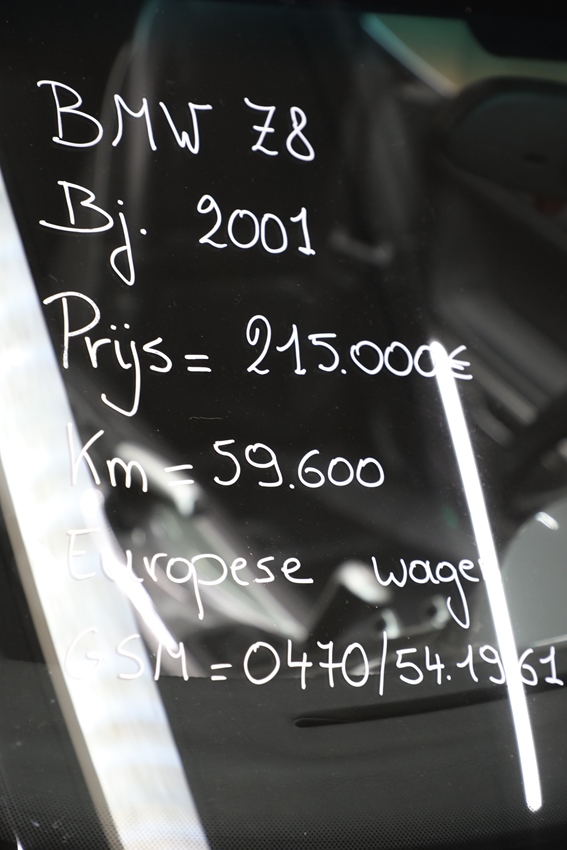 BMW Z8
Bj. 2001
Prijs = 215.000€
Km = 59.600
Europese wagen
GSM = 0470/54.19.61